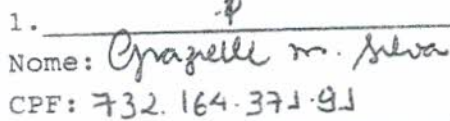 1.
Nome: Grazielle m. Silva
CPF: 732.164.371-91